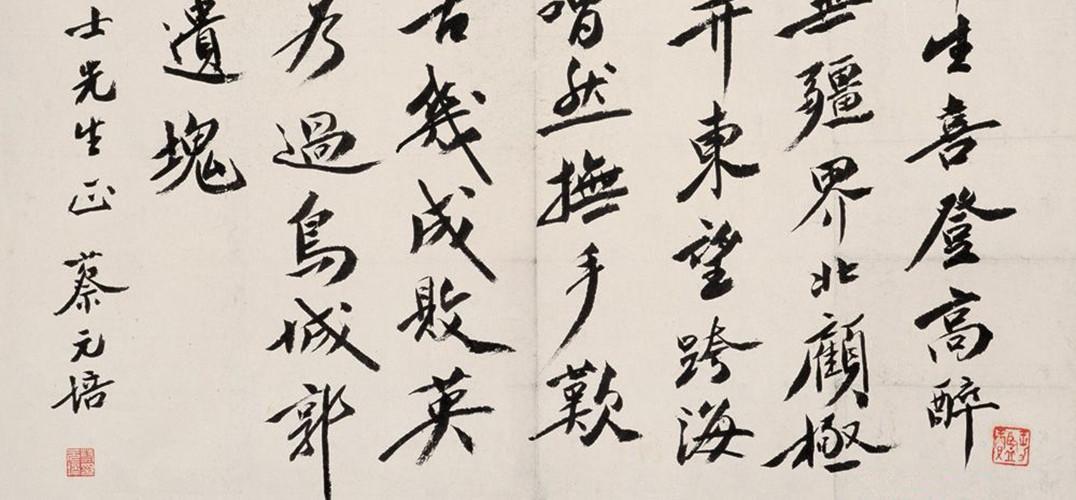 生喜登高醉
無疆界北顧極
开東望跨海
喟然撫手歎
古幾成敗英
為過鳥城郭
遺塊
士先生正 蔡元培